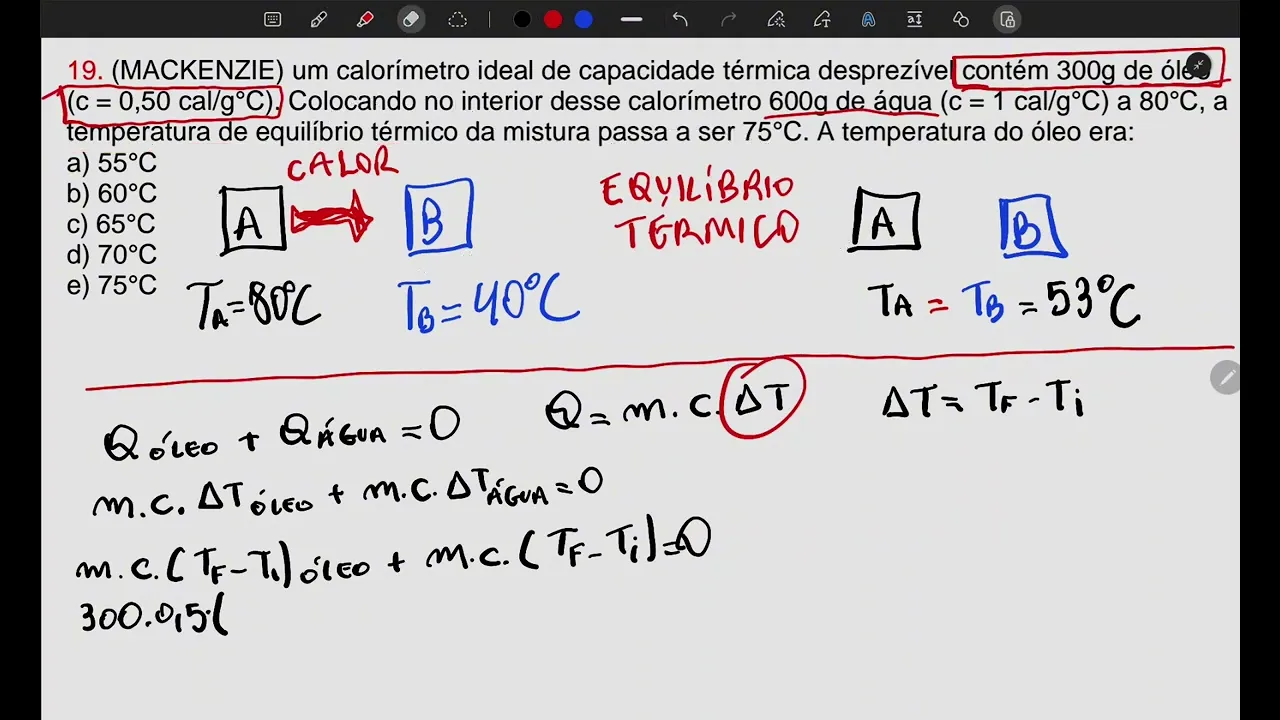 19. (MACKENZIE) um calorímetro ideal de capacidade térmica desprezível contém 300g de óleo
(c = 0,50 cal/g°C). Colocando no interior desse calorímetro 600g de água (c = 1 cal/g°C) a 80°C, a
temperatura de equilíbrio térmico da mistura passa a ser 75°C. A temperatura do óleo era:
a) 55°C
b) 60°C
c) 65°C
d) 70°C
e) 75°C
CALOR
A B
TA=80°C TB=40°C
EQUILÍBRIO
TÉRMICO
A B
TA = TB = 53°C
QÓLEO + QÁGUA = 0
Q = m.c.ΔT
ΔT = TF - Ti
m.c.ΔTÓLEO + m.c.ΔTÁGUA = 0
m.c.(TF-Ti)ÓLEO + m.c.(TF-Ti)=0
300.0,5.(